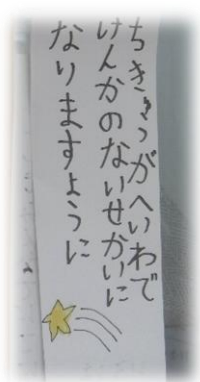 ちきゅうがへいわで
けんかのないせかいに
なりますように